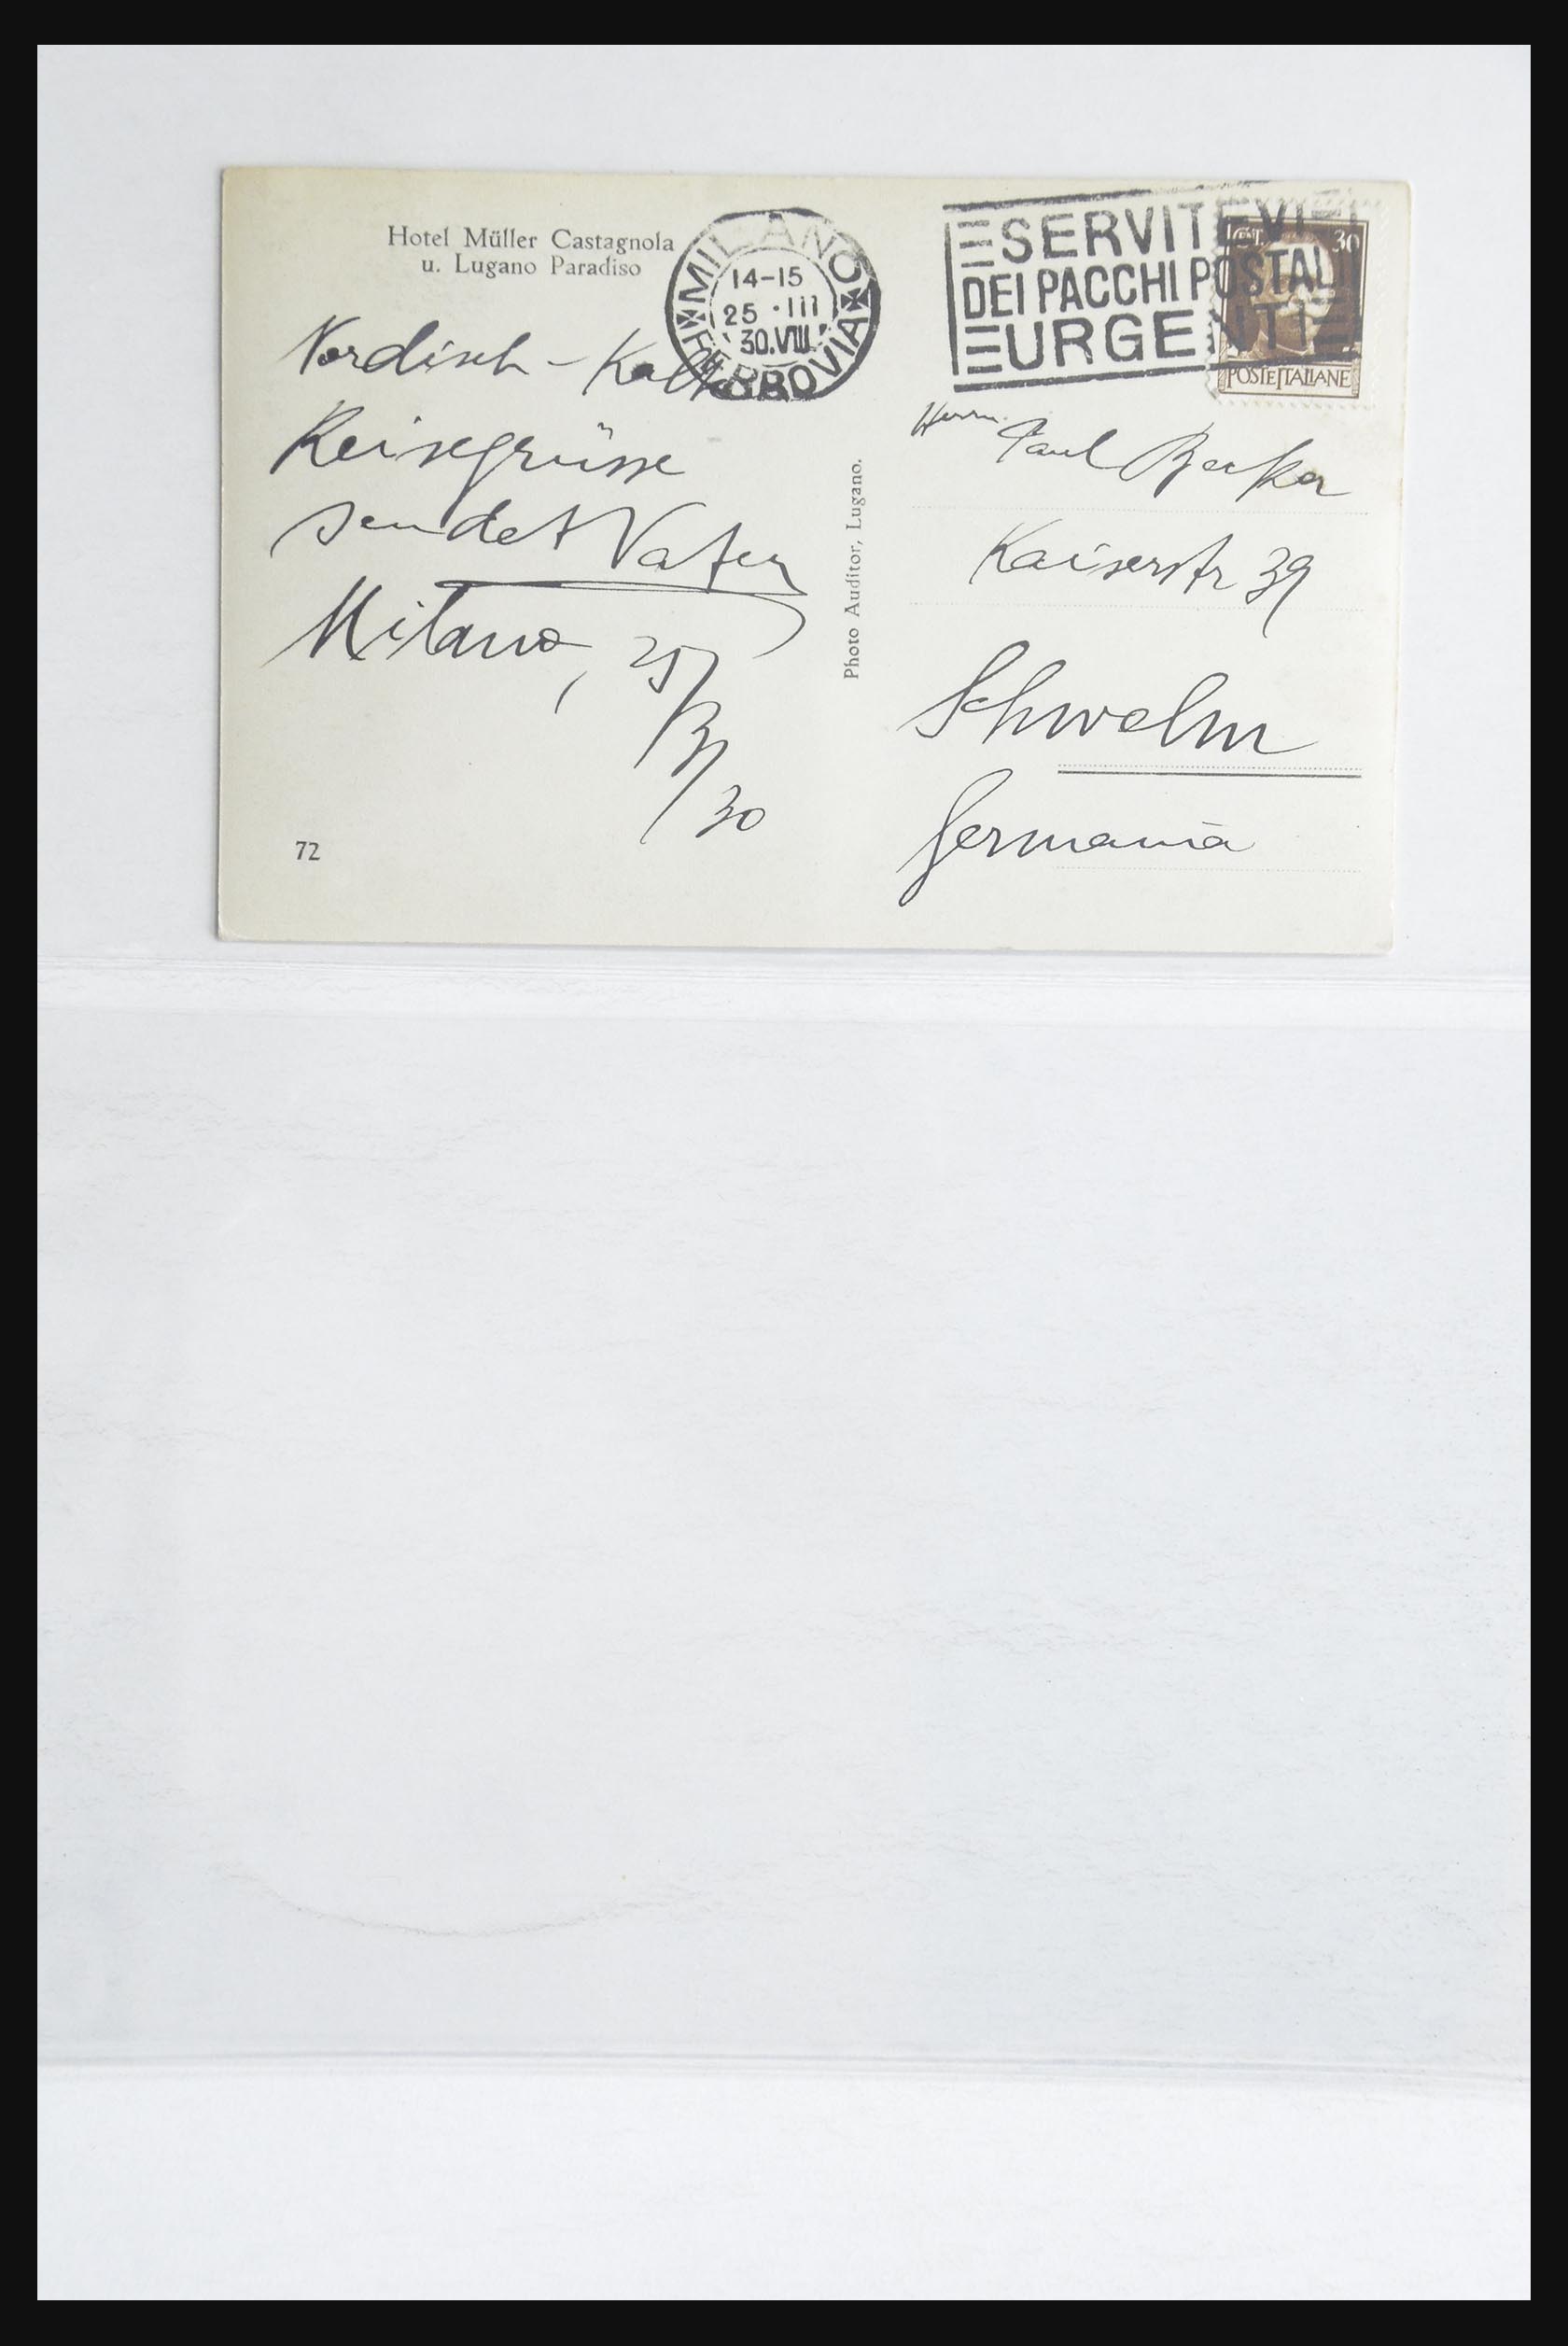 Hotel Müller Castagnola
u. Lugano Paradiso
MILANO
14-15
25 · III
30.VIII.
FERROVIA
SERVITEVI
DEI PACCHI POSTALI
URGENTI
CENT. 30
POSTE ITALIANE
Nordisch - Kalte
Reisegrüsse
sendet Vater
Milano, 25/3/30
72
Photo Auditor, Lugano.
Herrn Paul Becker
Kaiserstr 39
Schwelm
Germania